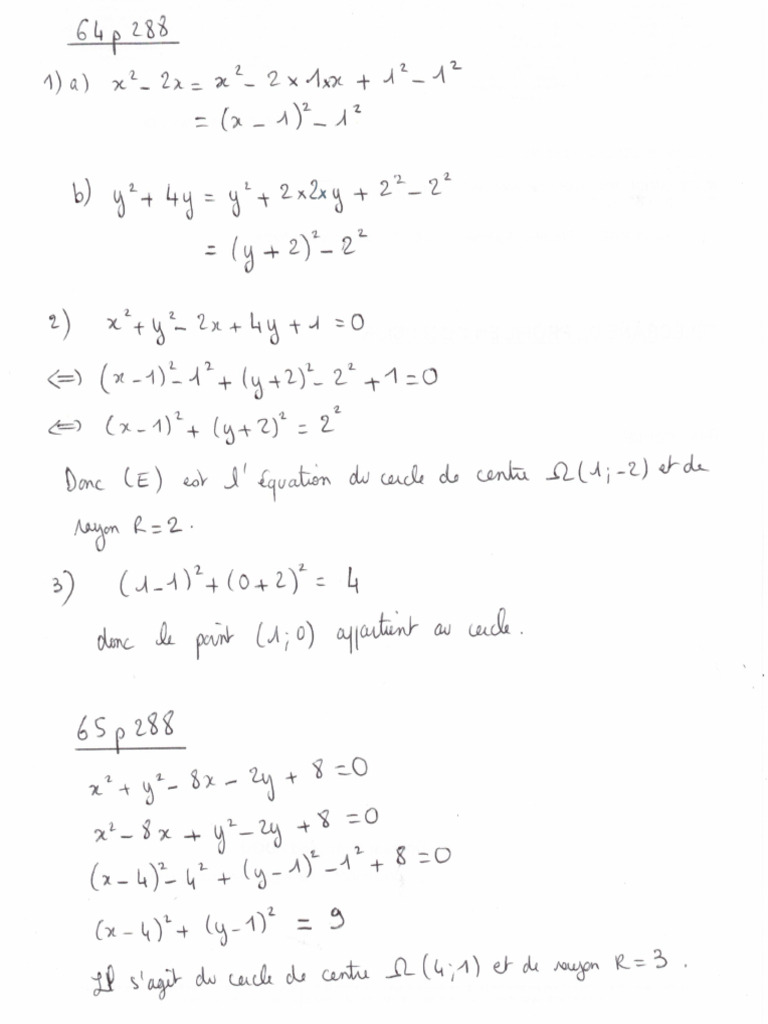 64 p 288
1) a) x² - 2x = x² - 2 × 1 × x + 1² - 1²
= (x - 1)² - 1²
b) y² + 4y = y² + 2×2×y + 2² - 2²
= (y + 2)² - 2²
2) x² + y² - 2x + 4y + 1 = 0
⇔ (x - 1)² - 1² + (y + 2)² - 2² + 1 = 0
⇔ (x - 1)² + (y + 2)² = 2²
Donc (E) est l'équation du cercle de centre Ω(1 ; -2) et de
rayon R = 2.
3) (1 - 1)² + (0 + 2)² = 4
donc le point (1 ; 0) appartient au cercle.
65 p 288
x² + y² - 8x - 2y + 8 = 0
x² - 8x + y² - 2y + 8 = 0
(x - 4)² - 4² + (y - 1)² - 1² + 8 = 0
(x - 4)² + (y - 1)² = 9
Il s'agit du cercle de centre Ω(4 ; 1) et de rayon R = 3.